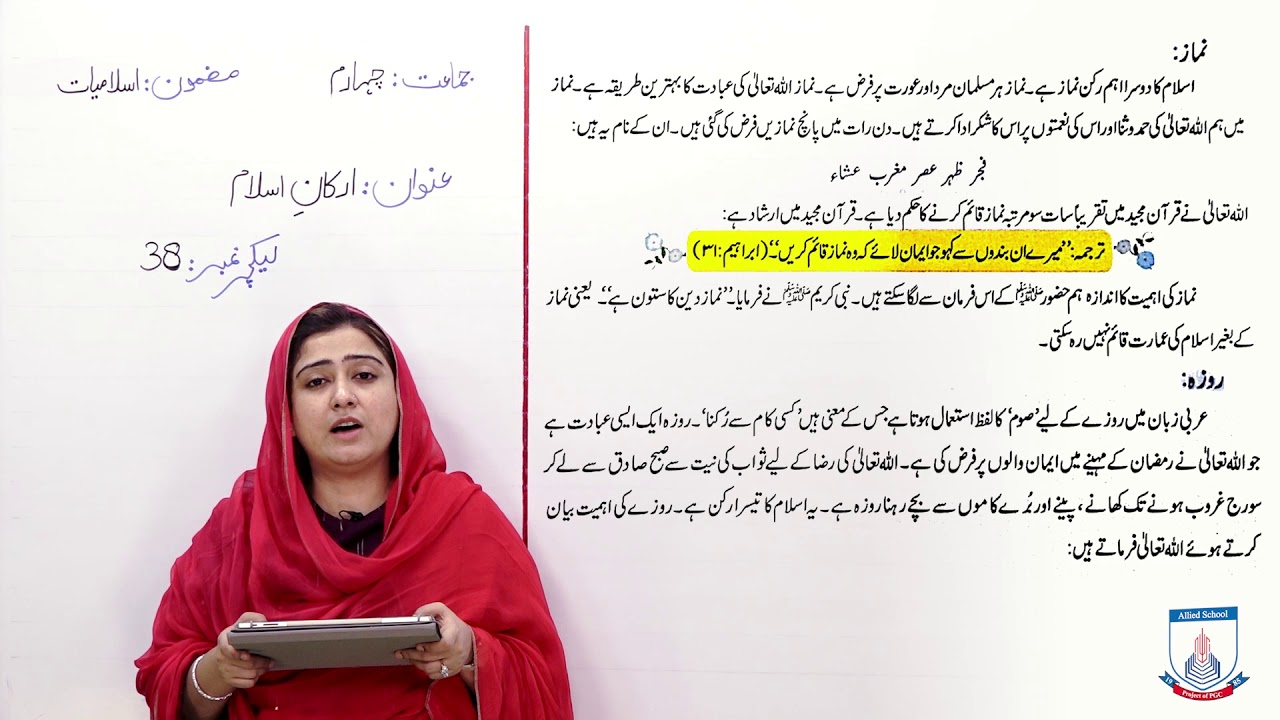 جماعت: چہارم
مضمون: اسلامیات
عنوان: ارکانِ اسلام
لیکچر نمبر: 38
نماز:
اسلام کا دوسرا اہم رکن نماز ہے۔ نماز ہر مسلمان مرد اور عورت پر فرض ہے۔ نماز اللہ تعالیٰ کی عبادت کا بہترین طریقہ ہے۔ نماز
میں ہم اللہ تعالیٰ کی حمد و ثنا اور اس کی نعمتوں پر اس کا شکر ادا کرتے ہیں۔ دن رات میں پانچ نمازیں فرض کی گئی ہیں۔ ان کے نام یہ ہیں:
فجر ظہر عصر مغرب عشاء
اللہ تعالیٰ نے قرآن مجید میں تقریباً سات سو مرتبہ نماز قائم کرنے کا حکم دیا ہے۔ قرآن مجید میں ارشاد ہے:
ترجمہ: ’’میرے ان بندوں سے کہو جو ایمان لائے کہ وہ نماز قائم کریں۔‘‘ (ابراہیم: ۳۱)
نماز کی اہمیت کا اندازہ ہم حضور ﷺ کے اس فرمان سے لگا سکتے ہیں۔ نبی کریم ﷺ نے فرمایا۔ ’’نماز دین کا ستون ہے‘‘۔ یعنی نماز
کے بغیر اسلام کی عمارت قائم نہیں رہ سکتی۔
روزہ:
عربی زبان میں روزے کے لیے ’صوم‘ کا لفظ استعمال ہوتا ہے جس کے معنی ہیں ’کسی کام سے رُکنا‘۔ روزہ ایک ایسی عبادت ہے
جو اللہ تعالیٰ نے رمضان کے مہینے میں ایمان والوں پر فرض کی ہے۔ اللہ تعالیٰ کی رضا کے لیے ثواب کی نیت سے صبح صادق سے لے کر
سورج غروب ہونے تک کھانے، پینے اور بُرے کاموں سے بچے رہنا روزہ ہے۔ یہ اسلام کا تیسرا رکن ہے۔ روزے کی اہمیت بیان
کرتے ہوئے اللہ تعالیٰ فرماتے ہیں:
Allied School
19 85
Project of PGC